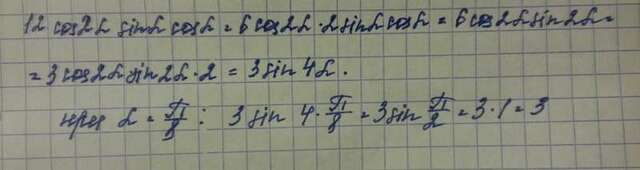 12 cos2α sinα cosα = 6 cos2α · 2 sinα cosα = 6 cos2α sin2α =
= 3 cos2α sin2α · 2 = 3 sin 4α.
при α = π/8 : 3 sin 4 · π/8 = 3 sin π/2 = 3 · 1 = 3